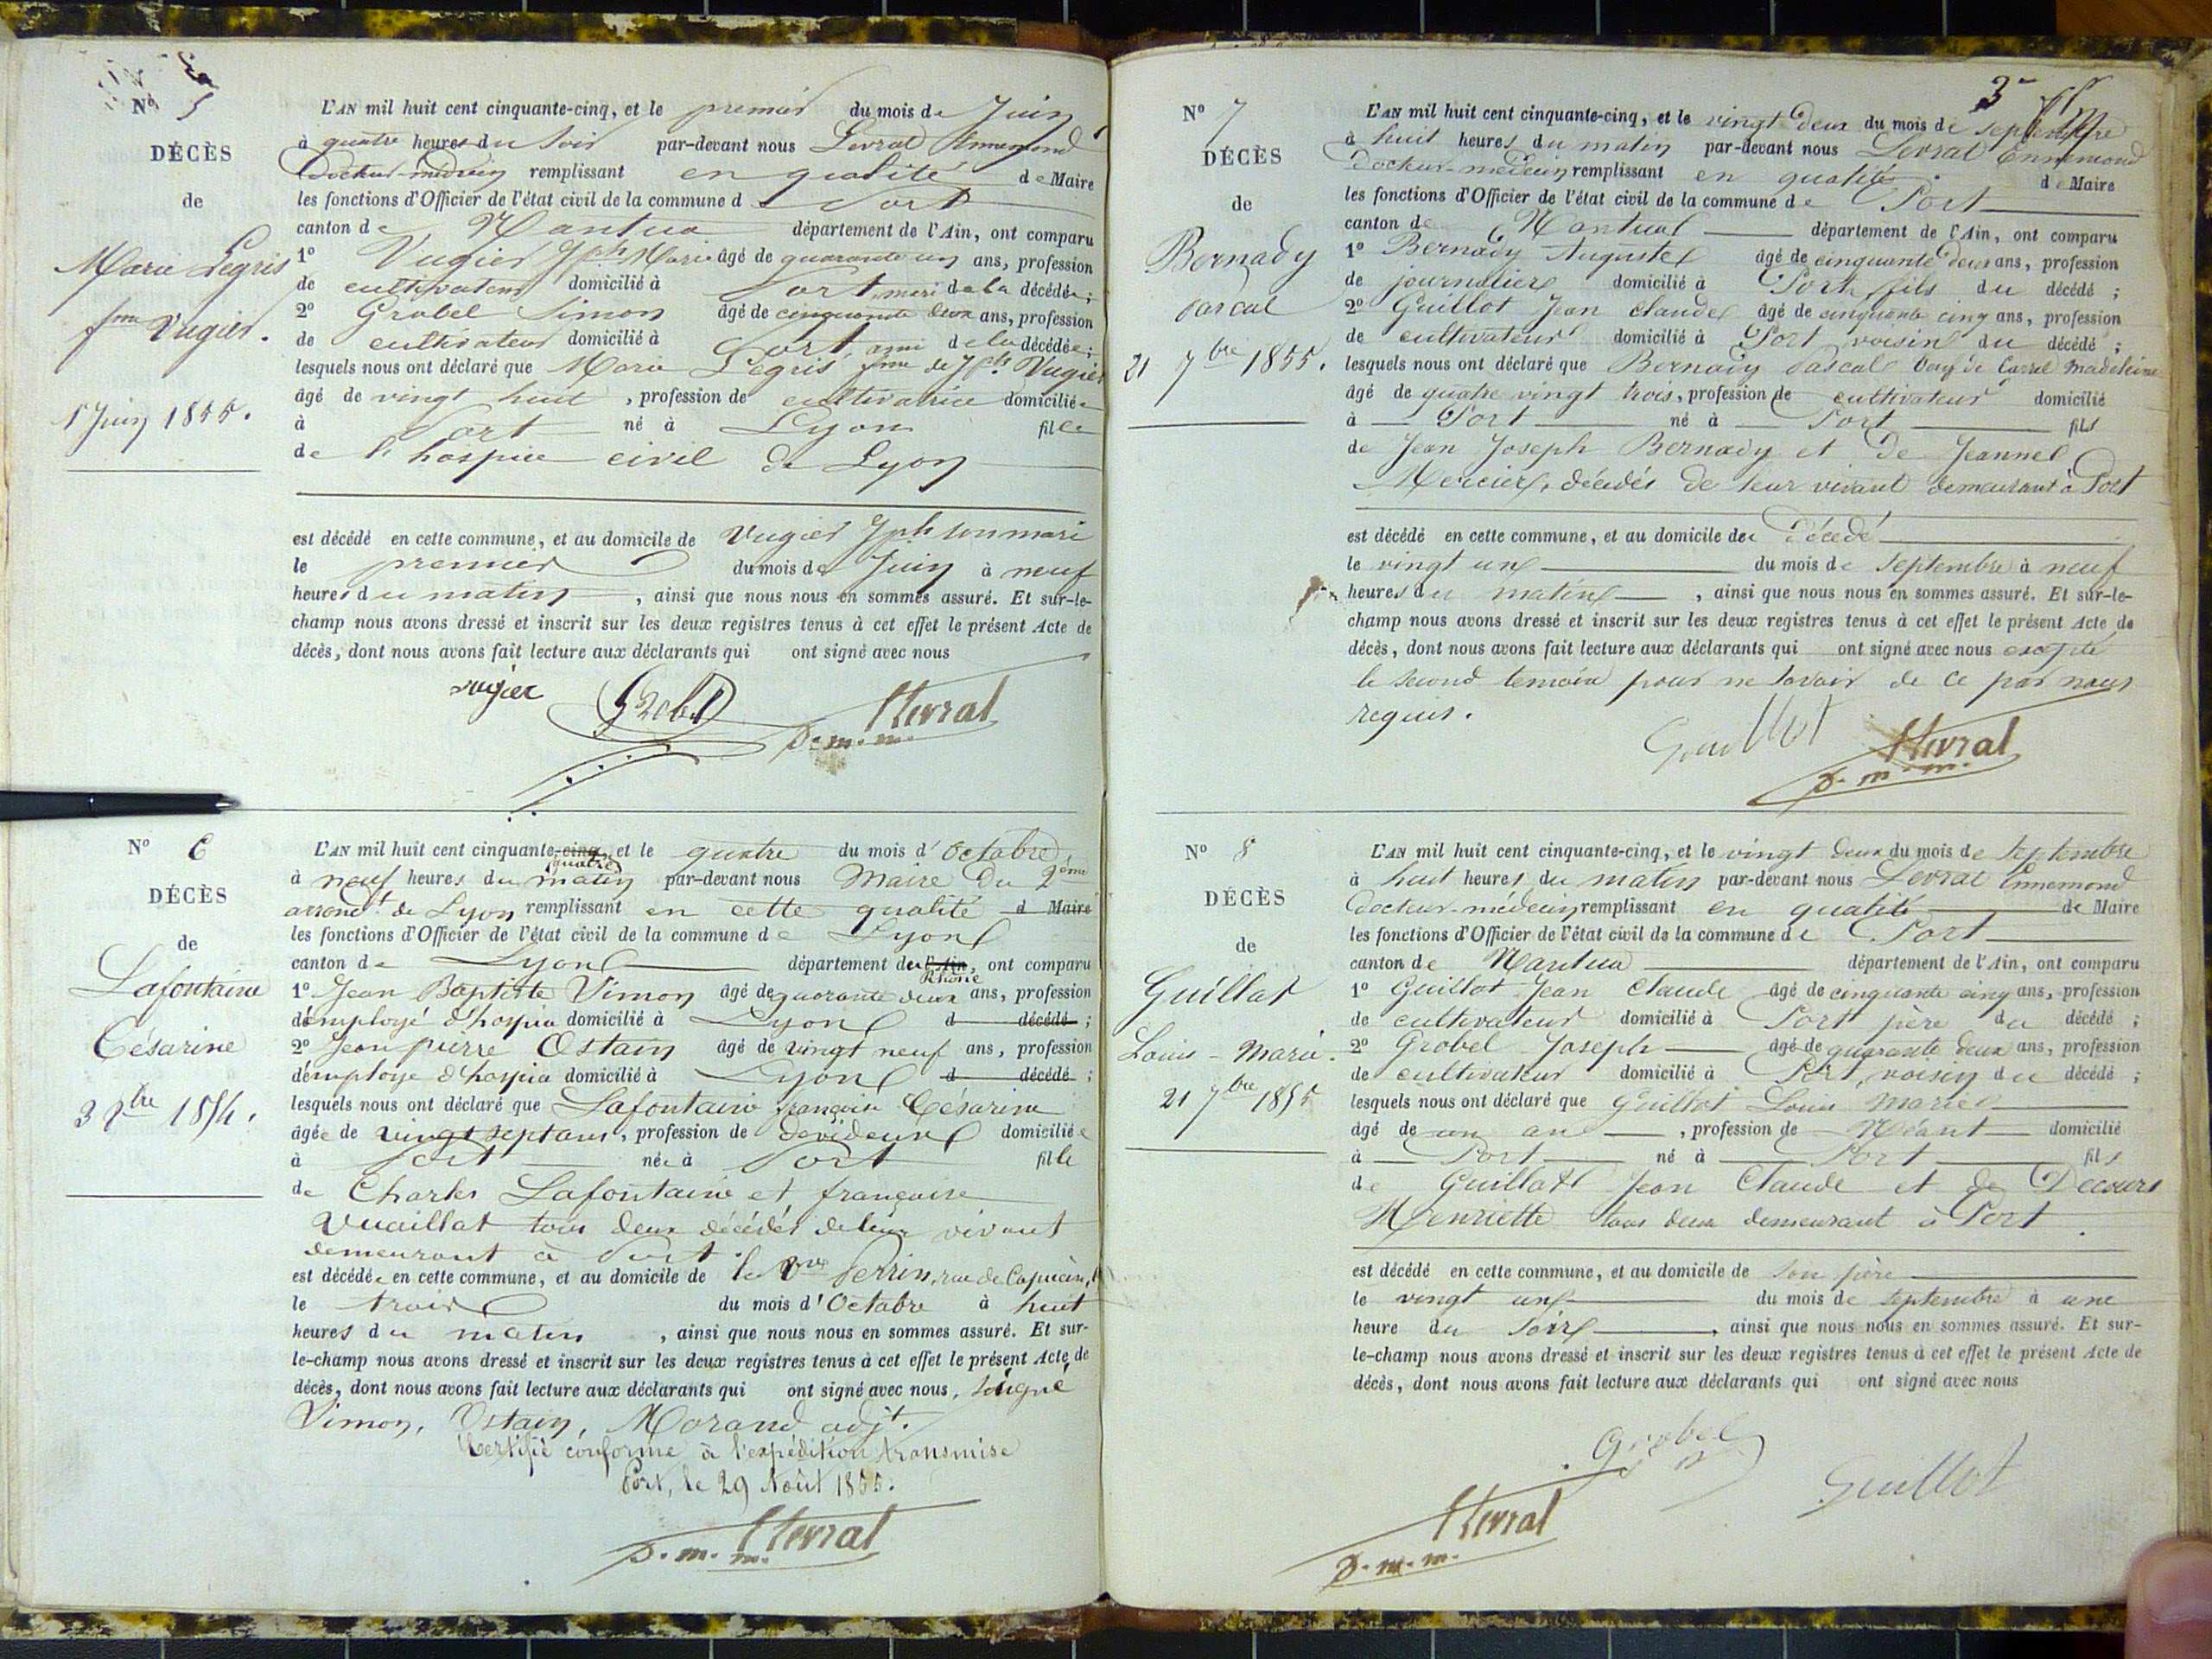 Nº 5
DÉCÈS
de
Marie Legris
fme Vugier.
1 Juin 1855.
L'AN mil huit cent cinquante-cinq, et le premier du mois de Juin
à quatre heures du soir par-devant nous Levrat Ennemond
Docteur-médecin remplissant en qualité de Maire
les fonctions d'Officier de l'état civil de la commune de Port
canton de Nantua département de l'Ain, ont comparu
1º Vugier Jph Marie âgé de quarante un ans, profession
de cultivateur domicilié à Port, mari de la décédée;
2º Grobel Simon âgé de cinquante deux ans, profession
de cultivateur domicilié à Port, ami de la décédée;
lesquels nous ont déclaré que Marie Legris fme de Jph Vugier
âgé de vingt huit, profession de cultivatrice domiciliée
à Port né à Lyon fille
de l'hospice civil de Lyon
est décédé en cette commune, et au domicile de Vugier Jph son mari
le premier du mois de Juin à neuf
heures du matin, ainsi que nous nous en sommes assuré. Et sur-le-
champ nous avons dressé et inscrit sur les deux registres tenus à cet effet le présent Acte de
décès, dont nous avons fait lecture aux déclarants qui ont signé avec nous
vugier Grobel Levrat
D. m. m.
Nº 6
DÉCÈS
de
Lafontaine
Césarine
3 8bre 1854.
L'AN mil huit cent cinquante-cinq, et le quatre du mois d'Octobre
quatre
à neuf heures du matin par-devant nous Maire du 2ème
arrondt de Lyon remplissant en cette qualité d Maire
les fonctions d'Officier de l'état civil de la commune de Lyon
canton de Lyon département du l'Ain, ont comparu
Rhône
1º Jean Baptiste Simon âgé de quarante deux ans, profession
d'employé d'hospice domicilié à Lyon d décédé;
2º Jean pierre Ostain âgé de vingt neuf ans, profession
d'employé d'hospice domicilié à Lyon d décédé;
lesquels nous ont déclaré que Lafontaine françoise Césarine
âgée de vingt sept ans, profession de dévideuse domiciliée
à Port née à Port fille
de Charles Lafontaine et françoise
Vuaillat tous deux décédés de leur vivant
demeurant à Port
est décédée en cette commune, et au domicile de la Vve Perrin, rue de Capucins, 1
le trois du mois d'Octobre à huit
heures du matin, ainsi que nous nous en sommes assuré. Et sur-
le-champ nous avons dressé et inscrit sur les deux registres tenus à cet effet le présent Acte de
décès, dont nous avons fait lecture aux déclarants qui ont signé avec nous, signé
Simon, Ostain, Morand adjt.
Certifié conforme à l'expédition transmise
Port, le 29 Août 1855.
Levrat
D. m. m.
3
Nº 7
DÉCÈS
de
Bernady
Pascal
21 7bre 1855.
L'AN mil huit cent cinquante-cinq, et le vingt deux du mois de septembre
à huit heures du matin par-devant nous Levrat Ennemond
Docteur-médecin remplissant en qualité de Maire
les fonctions d'Officier de l'état civil de la commune de Port
canton de Nantua département de l'Ain, ont comparu
1º Bernady Auguste âgé de cinquante deux ans, profession
de journalier domicilié à Port, fils du décédé;
2º Guillot Jean claude âgé de cinquante cinq ans, profession
de cultivateur domicilié à Port voisin du décédé;
lesquels nous ont déclaré que Bernady Pascal veuf de Carrel Madeleine
âgé de quatre vingt trois, profession de cultivateur domicilié
à Port né à Port fils
de Jean Joseph Bernady et de Jeanne
Mercier, décédés de leur vivant demeurant à Port
est décédé en cette commune, et au domicile de décédé
le vingt un du mois de septembre à neuf
heures du matin, ainsi que nous nous en sommes assuré. Et sur-le-
champ nous avons dressé et inscrit sur les deux registres tenus à cet effet le présent Acte de
décès, dont nous avons fait lecture aux déclarants qui ont signé avec nous excepté
le second temoin pour ne savoir de ce par nous
requis.
Guillot Levrat
D. m. m.
Nº 8
DÉCÈS
de
Guillot
Louis-Marie.
21 7bre 1855
L'AN mil huit cent cinquante-cinq, et le vingt deux du mois de septembre
à huit heures du matin par-devant nous Levrat Ennemond
Docteur-médecin remplissant en qualité de Maire
les fonctions d'Officier de l'état civil de la commune de Port
canton de Nantua département de l'Ain, ont comparu
1º Guillot Jean Claude âgé de cinquante cinq ans, profession
de cultivateur domicilié à Port père du décédé;
2º Grobel Joseph âgé de quarante deux ans, profession
de cultivateur domicilié à Port, voisin du décédé;
lesquels nous ont déclaré que Guillot Louis Marie
âgé de un an, profession de Néant domicilié
à Port né à Port fils
de Guillot Jean Claude et de Decours
Henriette tous deux demeurant à Port.
est décédé en cette commune, et au domicile de son père
le vingt un du mois de septembre à une
heure du soir, ainsi que nous nous en sommes assuré. Et sur-
le-champ nous avons dressé et inscrit sur les deux registres tenus à cet effet le présent Acte de
décès, dont nous avons fait lecture aux déclarants qui ont signé avec nous
Grobel
Guillot
Levrat
D. m. m.